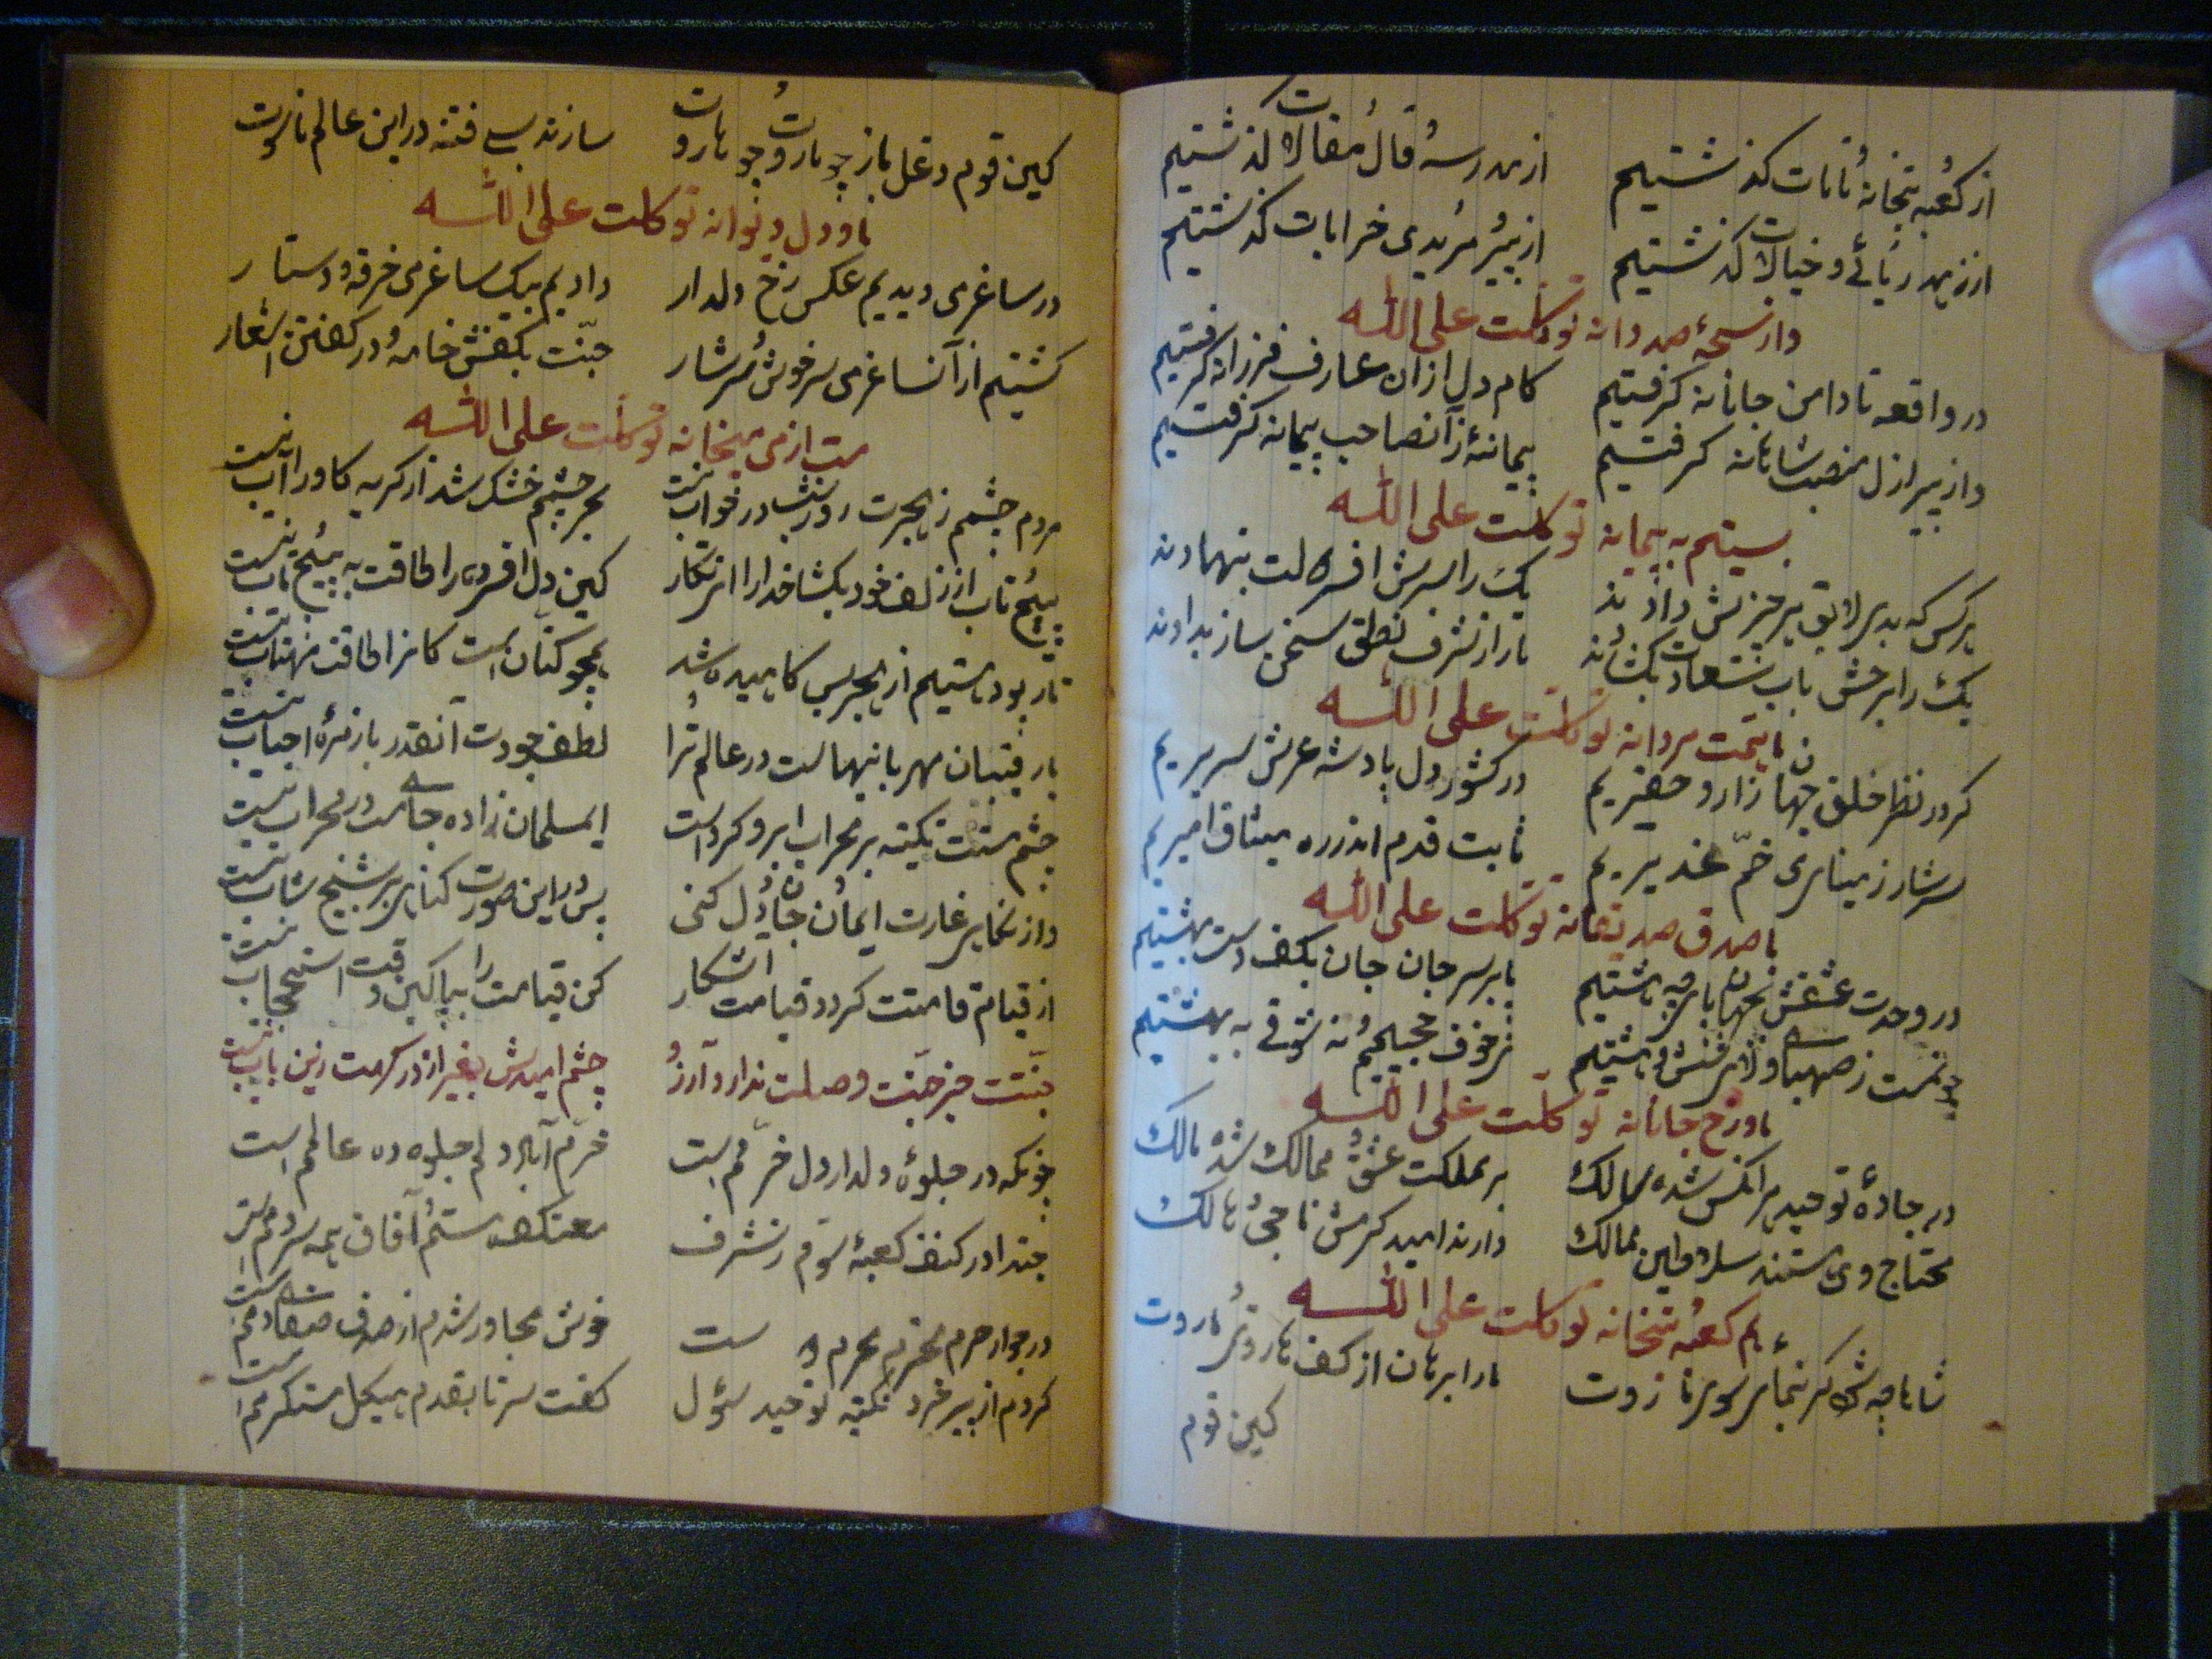 از کعبه بتخانه نامات گذشتیم از مدرسه قال مقالات گذشتیم
از زهد ریائی و خیالات گذشتیم از پیر مریدی خرابات گذشتیم
واز سبحه صد دانه توکلت علی الله
در واقعه تا دامن جانانه گرفتیم کام دل ازان عارف فرزانه گرفتیم
واز پیر ازل منصب شاهانه گرفتیم پیمانهٔ زآنصاحب پیمانه گرفتیم
بستیم به پیمانه توکلت علی الله
هرکس که بدی لایق هر چیزش دادند یک را بسرش افسر بنهادند
یک را برخش باب سعادت بگشادند باز از شرف نطق سخن ساز بدادند
با همت مردانه توکلت علی الله
گر در نظر خلق جهان زار و حقیریم در کشور دل پادشه عرش سریریم
سرشار ز مینای خمّ غدیریم ثابت قدم اندر ره میثاق امیریم
با صدق صدیقانه توکلت علی الله
در وحدت عشقش نجهان با هرچه هشتیم با بر سر جان جان بکف دست بهشتیم
نز خوف جحیمیم و نه شوقی به بهشتیم
باور خ جانانه توکلت علی الله
در جادهٔ توحید هر آنکس شده سالک بر مملکت عشق ممالک شده مالک
محتاج وی هستند سلاطین ممالک دارند امید کرمش ناجی و هالک
هم کعبه بتخانه توکلت علی الله
شاها چه شود گر بنمائی سوی ما روت ما را برهان از کف هاروتی ماروت
کین قوم
کین قوم دغل باز چو ماروت و چو هاروت سازند بسی فتنه در این عالم ناسوت
با دل دیوانه توکلت علی الله
در ساغر می دیدیم عکس رخ دلدار دادیم بیک ساغر می خرقه و دستار
گشتیم از آن ساغر می سرخوش و سرشار جنّت بکفش خامه و در گفتن اشعار
مست از می میخانه توکلت علی الله
مردم چشمم ز هجرت روز و شب در خواب نیست بحر چشمم خشک شد از گریه کاو را آب نیست
پیچ تاب از زلف خود بگشا خدا را ای نگار کین دل افسرده را طاقت به پیچ تاب نیست
تار پود هستیم از هجر بس کاهیده شد همچو کتّان است کانرا طاقت مهتاب نیست
با رقیبان مهربانیهاست در عالم ترا لطف جودت آنقدر با زمرهٔ احباب نیست
چشم مستت تکیه بر محراب ابرو کرد است ای مسلمان زاده جای مست در محراب نیست
واز نگاهی غارت ایمان و جان و دل کنی پس در این صورت گناهی بر شیخ شاب نیست
از قیام قامتت گردد قیامت آشکار کن قیامت را بپا کین وقت استحجاب نیست
جنّتت جز جنّت وصلت ندارد آرزو چشم امیدش بغیر از در گرمت زین باب نیست
چونکه در جلوهٔ دلدار دل خرّمم است خرّم آباد دلم جلوه ده عالم است
معتکف هستم و آفاق همه سر
در جوار حرم محترم محرم ست خوش مجاور شدم از صدق صفا
کردم از پیر خرد نکته توحید سؤل گفت سر تا بقدم هیکل